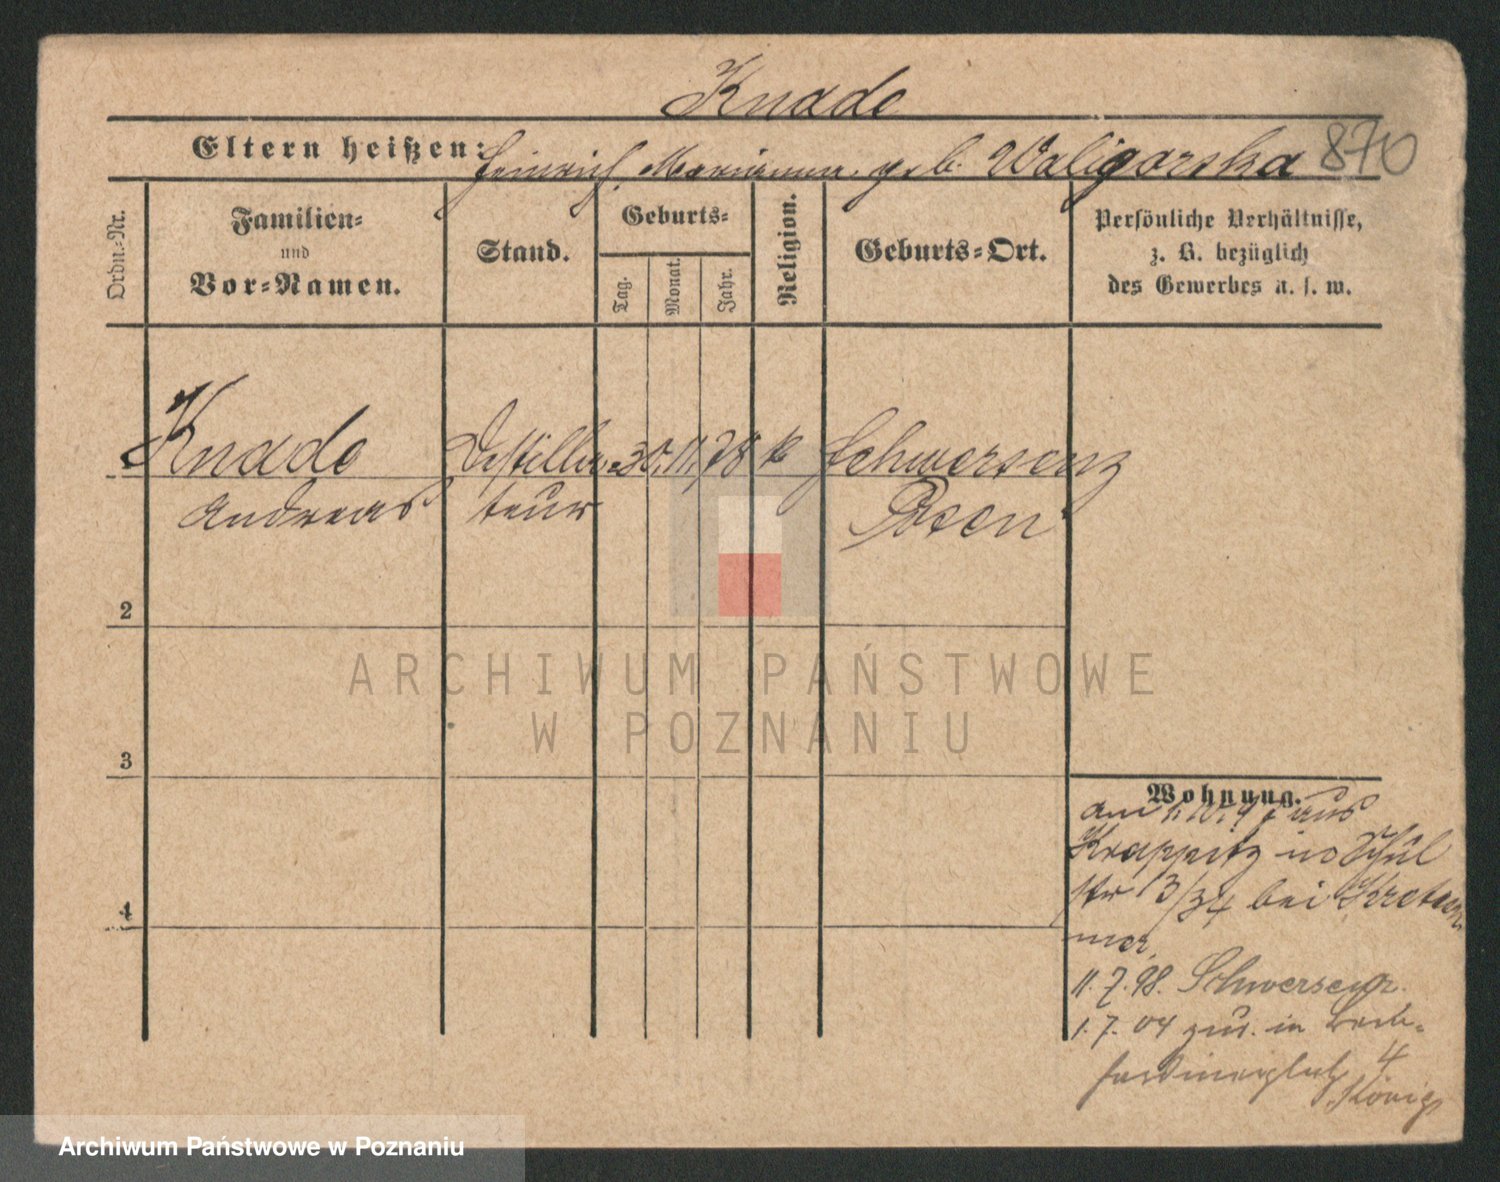 Knade
870
Eltern heißen: Heinrich, Marianna, geb. Waligorska
Ordn.-Nr.
Familien-
und
Vor-Namen.
Stand.
Geburts-
Tag.
Monat.
Jahr.
Religion.
Geburts-Ort.
Persönliche Verhältnisse,
z. B. bezüglich
des Gewerbes u. s. w.
1 Knade Destilla- 30. 11. 78 k Schwersenz
Andreas teur Posen
2
3
4
Wohnung.
am 1. 10. aus
Krappitz in Schul
str 13/34 bei Kretsch
mer,
11. 7. 98. Schwersenz.
1. 7. 04 zur. in
4
König
ARCHIWUM PAŃSTWOWE
W POZNANIU
Archiwum Państwowe w Poznaniu